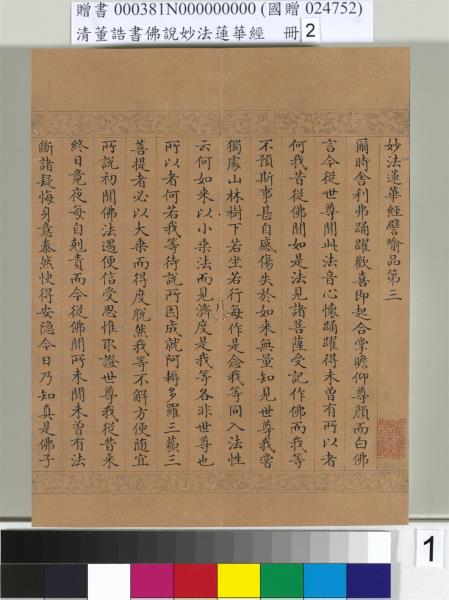 贈書 000381N000000000 (國贈 024752)
清董誥書佛說妙法蓮華經 冊 2
妙法蓮華經譬喻品第三
爾時舍利弗踊躍歡喜即起合掌瞻仰尊顏而白佛
言今從世尊聞此法音心懷踊躍得未曾有所以者
何我昔從佛聞如是法見諸菩薩受記作佛而我等
不預斯事甚自感傷失於如來無量知見世尊我嘗
獨處山林樹下若坐若行每作是念我等同入法性
云何如來以小乘法而見濟度是我等咎非世尊也
所以者何若我等待說所因成就阿耨多羅三藐三
菩提者必以大乘而得度脫然我等不解方便隨宜
所說初聞佛法遇便信受思惟取證世尊我從昔來
終日竟夜每自剋責而今從佛聞所未聞未曾有法
斷諸疑悔身意泰然快得安隱今日乃知真是佛子
1